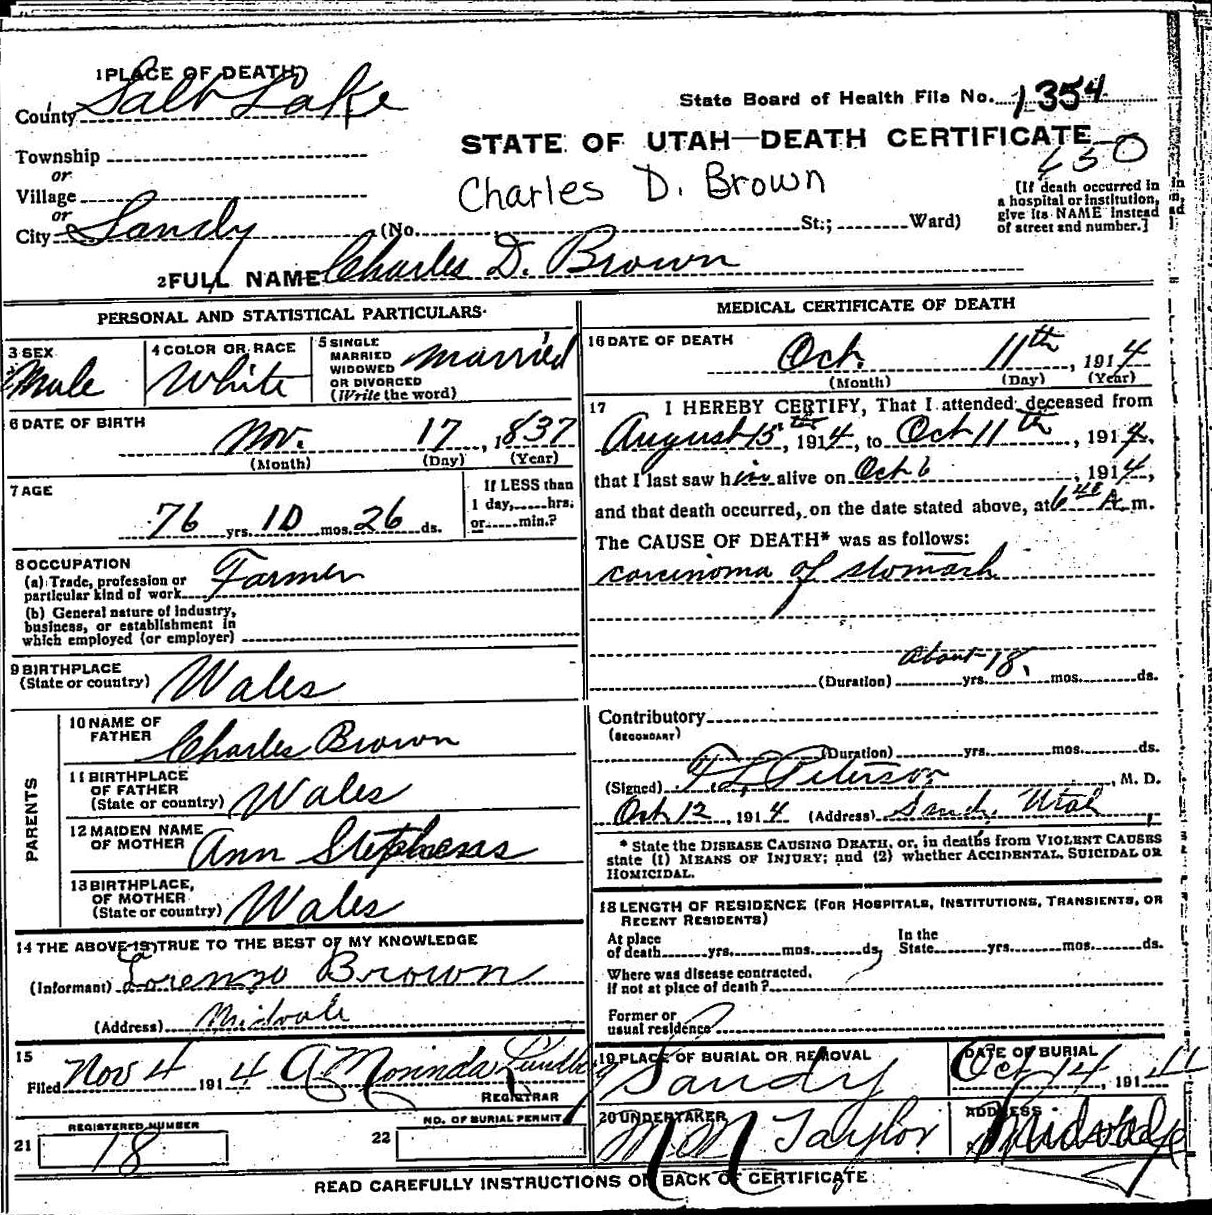 1 PLACE OF DEATH
County Salt Lake
State Board of Health File No. 1354
STATE OF UTAH—DEATH CERTIFICATE
Township
or
Village
or
City Sandy
Charles D. Brown
(No. St.; Ward)
[If death occurred in
a hospital or institution,
give its NAME instead
of street and number.]
2 FULL NAME Charles D. Brown
PERSONAL AND STATISTICAL PARTICULARS
3 SEX
Male
4 COLOR OR RACE
White
5 SINGLE
MARRIED
WIDOWED
OR DIVORCED
(Write the word)
Married
6 DATE OF BIRTH
Nov. 17, 1837
(Month) (Day) (Year)
7 AGE
76 yrs. 10 mos. 26 ds.
If LESS than
1 day, hrs.
or min.?
8 OCCUPATION
(a) Trade, profession or
particular kind of work Farmer
(b) General nature of Industry,
business, or establishment in
which employed (or employer)
9 BIRTHPLACE
(State or country) Wales
PARENTS
10 NAME OF
FATHER Charles Brown
11 BIRTHPLACE
OF FATHER
(State or country) Wales
12 MAIDEN NAME
OF MOTHER Ann Stephens
13 BIRTHPLACE,
OF MOTHER
(State or country) Wales
14 THE ABOVE IS TRUE TO THE BEST OF MY KNOWLEDGE
(Informant) Lorenzo Brown
(Address) Midvale
15
Filed Nov 4 1914
REGISTRAR
21 REGISTERED NUMBER
18
22 NO. OF BURIAL PERMIT
MEDICAL CERTIFICATE OF DEATH
16 DATE OF DEATH
Oct. 11th, 1914
(Month) (Day) (Year)
17 I HEREBY CERTIFY, That I attended deceased from
August 15th, 1914, to Oct 11th, 1914,
that I last saw him alive on Oct 6, 1914,
and that death occurred, on the date stated above, at 6 A. m.
The CAUSE OF DEATH* was as follows:
carcinoma of stomach
About 18
(Duration) yrs. mos. ds.
Contributory
(SECONDARY)
(Duration) yrs. mos. ds.
(Signed) Peterson, M. D.
Oct 12, 1914 (Address) Sandy Utah
* State the DISEASE CAUSING DEATH, or, in deaths from VIOLENT CAUSES
state (1) MEANS OF INJURY; and (2) whether ACCIDENTAL, SUICIDAL OR
HOMICIDAL.
18 LENGTH OF RESIDENCE (FOR HOSPITALS, INSTITUTIONS, TRANSIENTS, OR
RECENT RESIDENTS)
At place
of death yrs. mos. ds.
In the
State yrs. mos. ds.
Where was disease contracted,
if not at place of death?
Former or
usual residence
19 PLACE OF BURIAL OR REMOVAL
Sandy
DATE OF BURIAL
Oct 14, 1914
20 UNDERTAKER
M M Taylor
ADDRESS
Midvale
READ CAREFULLY INSTRUCTIONS ON BACK OF CERTIFICATE